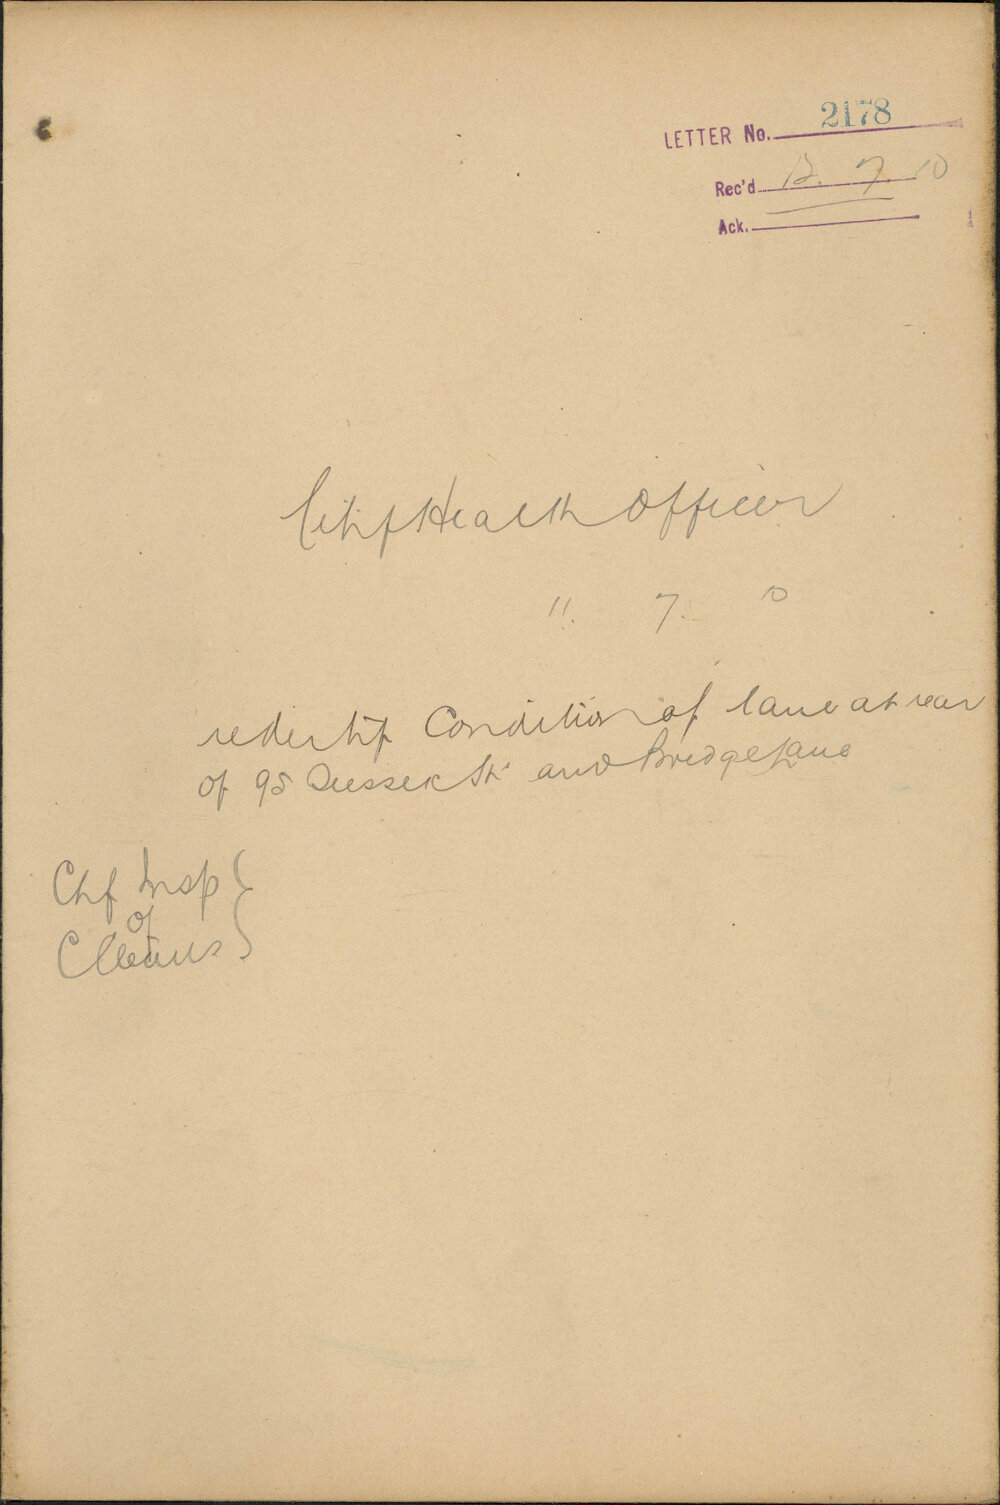 LETTER No. 2178
Rec'd 12. 7. 10
Ack.
City Health Officer
11. 7. 10
re dirty Condition of lane at rear
of 95 Sussex St and Bridge Lane
Chf Insp
of
Cleans